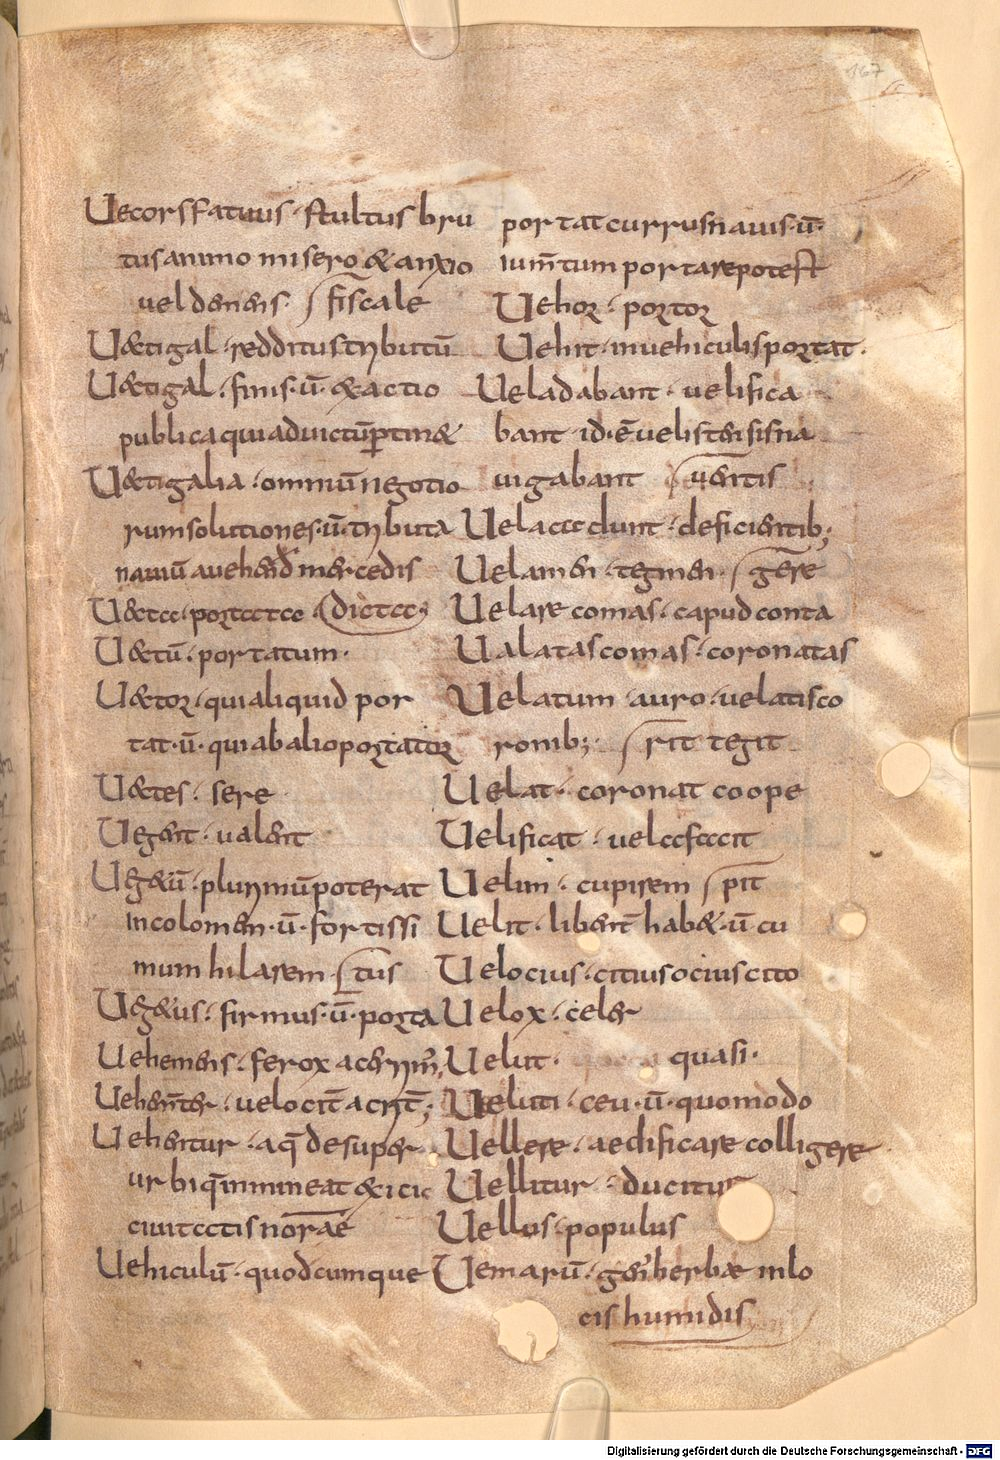 167
Uecors fatuus · stultus bru
tus animo misero & anxio
uel demens · fiscale
U&tigal · redditus tributū
U&tigal · finis · ū · exactio
publica qui ad uictū ꝑtin&
U&tigalia · omniū negotio
rum solutiones · ū · tributa
nauiū a uehend mercedis
U&ta · portata · dicta
U&tū · portatum ·
U&tor · qui aliquid por
tat · ū · qui ab alio portator
U&tes · sere
Uegent · ualent
Ug&ū · plurimū poterat
incolomen · ū · fortissi
mum hilarem · tus
Ug&us · firmus · ū · porta
Uehemens · ferox acerrim̄
Uehent̄er · uelocit̄ acrit̄;
Uehentur · aq̄ de super
urbi q̄ inmineat
ciuitatis nomē
Uehiculū · quodcumque
portat currus nauis · ū ·
ium̄tum portare potest
Uehor · portor
Uehit · in uehiculis portat ·
Ueladabant · uelifica
bant · id · ē uelis tensis na
uigabant uentis
Uela cadunt · deficientib;
Uelamen · tegmen · gere
Uelare comas · capud conta
Ualatas comas · coronatas
Uelatum auro · uelatis co
ronib; · rit tegit
Uelat · coronat coope
Uelificat · uela facit
Uelim · cupirem pit
Uelit · libent̄ hab& · ū cu
Uelocius · citius ocius cito
Uelox · celer
Uelut · quasi ·
Ueluti · ceu · ū · quomodo
Uellere · aedificare colligere
Uellitur · ducitur
Uellus · populus
Uemarū · gen herbae in lo
cis humidis
Digitalisierung gefördert durch die Deutsche Forschungsgemeinschaft - DFG